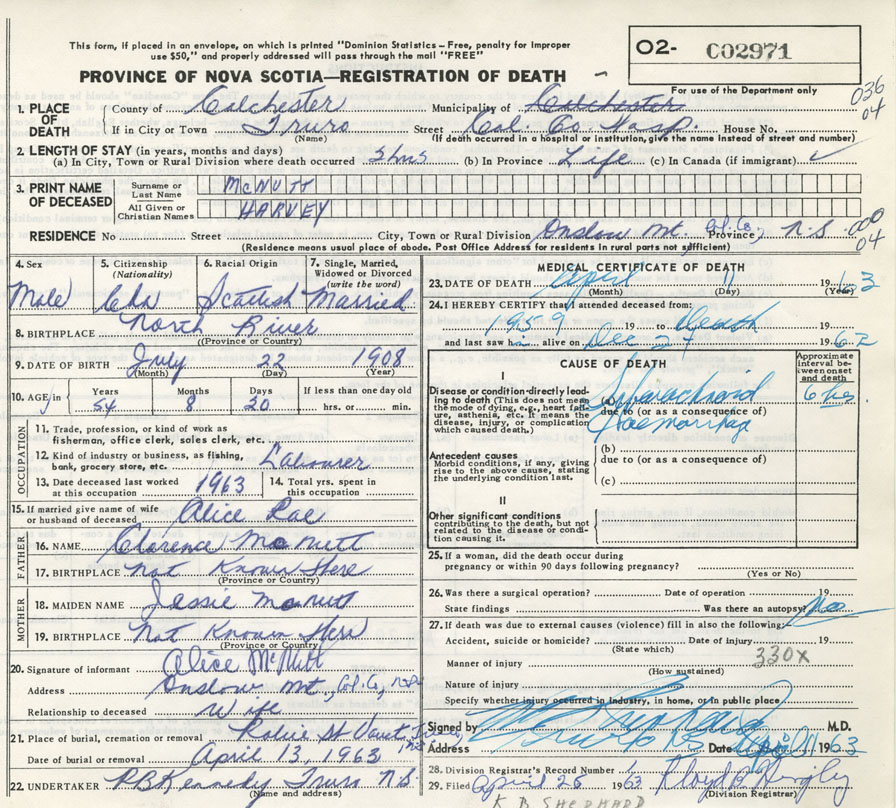 This form, if placed in an envelope, on which is printed "Dominion Statistics - Free, penalty for Improper
use $50," and properly addressed will pass through the mail "FREE"
PROVINCE OF NOVA SCOTIA—REGISTRATION OF DEATH
O2- C02971
For use of the Department only
036
04
1. PLACE OF DEATH
County of Colchester Municipality of Colchester
If in City or Town Truro Street Col. Co. Hosp. House No.
(Name) (If death occurred in a hospital or institution, give the name instead of street and number)
2. LENGTH OF STAY (in years, months and days)
(a) In City, Town or Rural Division where death occurred 3 hrs (b) In Province Life (c) In Canada (if immigrant)
3. PRINT NAME OF DECEASED
Surname or Last Name McNUTT
All Given or Christian Names HARVEY
RESIDENCE No Street City, Town or Rural Division Onslow Mt, Col. Co, Province, N.S
000
04
(Residence means usual place of abode. Post Office Address for residents in rural parts not sufficient)
4. Sex
Male
5. Citizenship
(Nationality)
Cdn
6. Racial Origin
Scottish
7. Single, Married, Widowed or Divorced
(write the word)
Married
8. BIRTHPLACE North River
(Province or Country)
9. DATE OF BIRTH July 22 1908
(Month) (Day) (Year)
10. AGE Years Months Days If less than one day old
54 8 20 hrs. or min.
OCCUPATION
11. Trade, profession, or kind of work as
fisherman, office clerk, sales clerk, etc.
12. Kind of industry or business, as fishing,
bank, grocery store, etc. Labourer
13. Date deceased last worked
at this occupation 1963
14. Total yrs. spent in
this occupation
15. If married give name of wife
or husband of deceased Alice Rae
FATHER
16. NAME Clarence McNutt
17. BIRTHPLACE Not Known Here
(Province or Country)
MOTHER
18. MAIDEN NAME Jessie McNutt
19. BIRTHPLACE Not Known Here
(Province or Country)
20. Signature of informant Alice McNutt
Address Onslow Mt., Col. Co,
Relationship to deceased Wife
21. Place of burial, cremation or removal Robie St Vault Truro,
Date of burial or removal April 13, 1963
22. UNDERTAKER P.B Kennedy Truro N.S
(Name and address)
MEDICAL CERTIFICATE OF DEATH
23. DATE OF DEATH April 11 1963
(Month) (Day) (Year)
24. I HEREBY CERTIFY that I attended deceased from:
1959 19 to death 19
and last saw him alive on Dec 27 1962
CAUSE OF DEATH
Approximate interval between onset and death
I
Disease or condition directly leading to death (This does not mean
the mode of dying, e.g., heart failure, asthenia, etc. It means the
disease, injury, or complication which caused death.)
(a) Subarachnoid
due to (or as a consequence of)
Haemorrhage
6 hrs.
Antecedent causes
Morbid conditions, if any, giving
rise to the above cause, stating
the underlying condition last.
(b)
due to (or as a consequence of)
(c)
II
Other significant conditions
contributing to the death, but not
related to the disease or condition causing it.
25. If a woman, did the death occur during
pregnancy or within 90 days following pregnancy?
(Yes or No)
26. Was there a surgical operation? Date of operation 19
State findings Was there an autopsy? No
27. If death was due to external causes (violence) fill in also the following:—
Accident, suicide or homicide? Date of injury 19
(State which)
330X
Manner of injury
(How sustained)
Nature of injury
Specify whether injury occurred in industry, in home, or in public place
Signed by M.D.
Address Date April 1963
28. Division Registrar's Record Number
29. Filed April 26 1963
(Division Registrar)
K B SHEPHARD